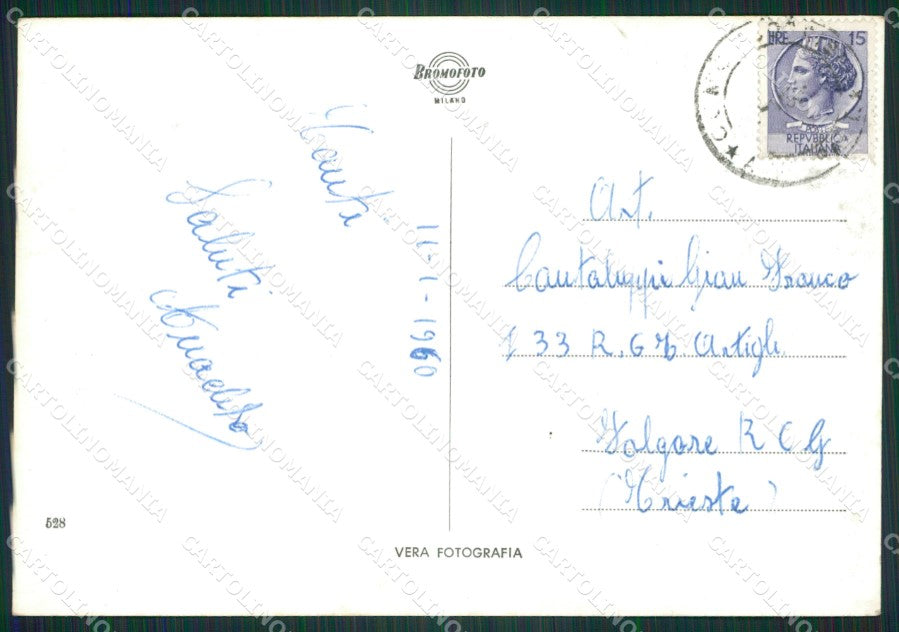 BROMOFOTO
MILANO
LIRE 15
POSTE
REPVBBLICA
ITALIANA
11-1-1960
Saluti
Art.
Cantaluppi Gian Franco
133 R. G
Artigl.
Folgore R C G
(Trieste)
528
VERA FOTOGRAFIA
CARTOLINOMANIA